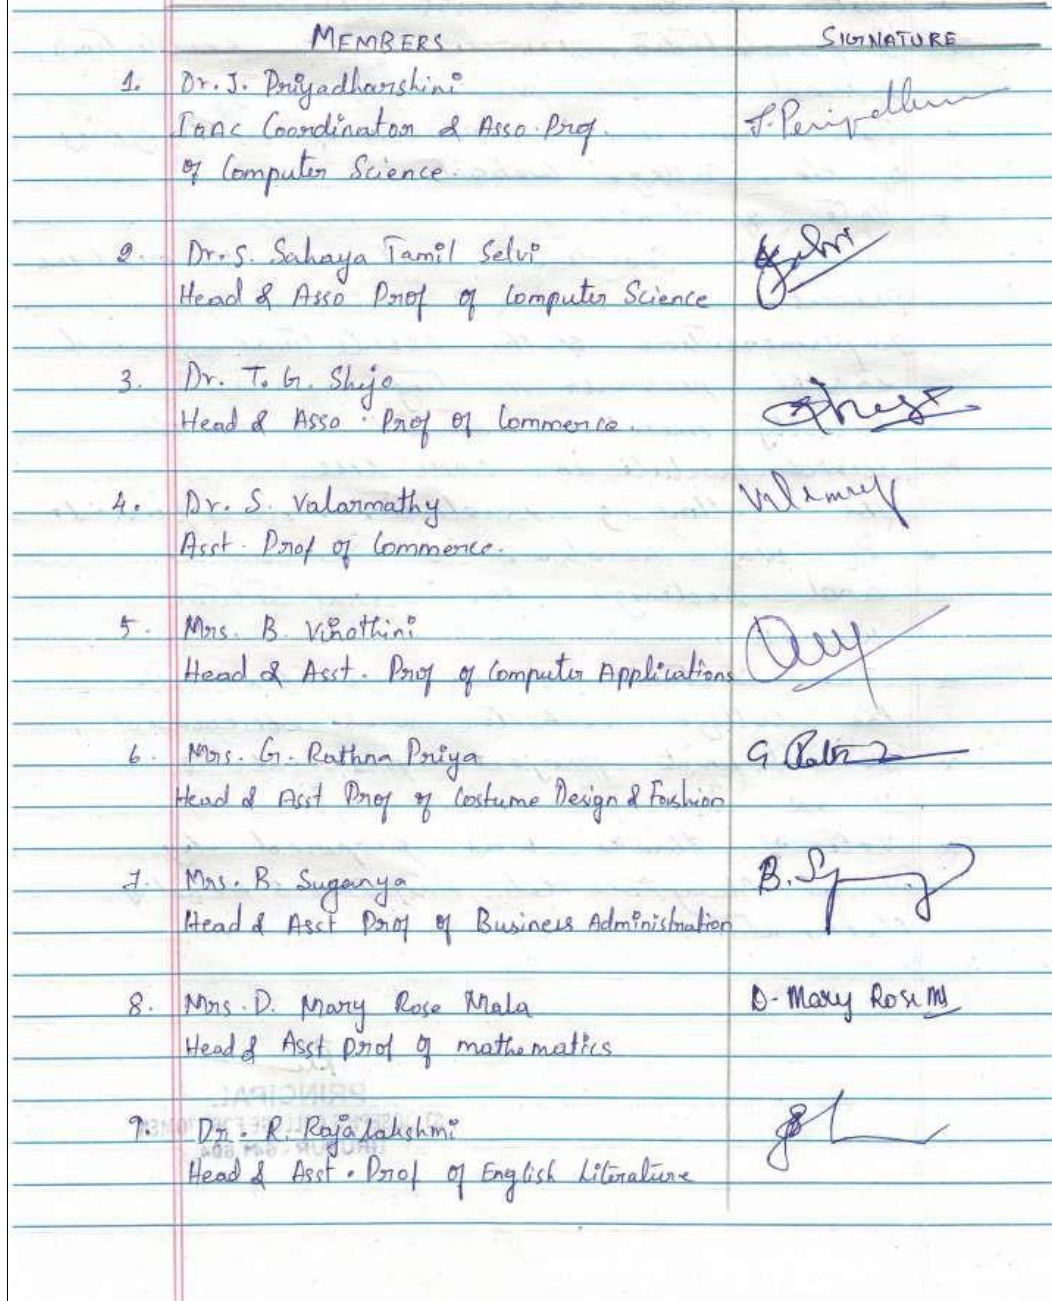 MEMBERS SIGNATURE
1. Dr. J. Priyadharshini
IQAC Coordinator & Asso. Prof.
of Computer Science.
J. Peri
2. Dr. S. Sahaya Tamil Selvi
Head & Asso Prof of Computer Science
3. Dr. T. G. Shijo
Head & Asso. Prof of Commerce.
4. Dr. S. Valarmathy
Asst. Prof of Commerce.
5. Mrs. B. Vinothini
Head & Asst. Prof of Computer Applications
6. Mrs. G. Rathna Priya
G
Head & Asst Prof of Costume Design & Fashion
7. Mrs. B. Suganya
B.
Head & Asst Prof of Business Administration
8. Mrs. D. Mary Rose Mala D. Mary Rose M
Head & Asst Prof of mathematics
PRINCIPAL
9. Dr. R. Rajalakshmi
Head & Asst. Prof of English Literature